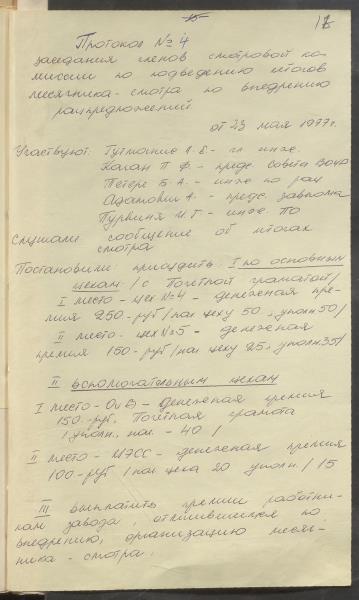 17
Протокол № 4
заседания членов смотровой ко-
миссии по подведению итогов
месячника-смотра по внедрению
рацпредложений
от 23 мая 1977 г.
Участвуют: Гутманис А. Е. - гл инж.
Каган П. Ф. - предс. Совета ВОИР
Петерс Б. А. - инж по рац
Адамович А. - предс. завкома
Пурвиня И. Г. - инж. ПО
Слушали сообщение об итогах
смотра
Постановили присудить: I по основным
цехам: /с Почетной грамотой/
I место - цех № 4 - денежная пре-
мия 250 - руб / нач цеху 50, уполн 50/
II место - цех № 5 - денежная
премия 150 - руб / нач цеху 25, уполн 35/
II вспомогательным цехам
I место - ОиВ - денежная премия
150 - руб. Почетная грамота
/ уполн, нач - 40 /
II место - ЦЭСС - денежная премия
100 - руб / нач цеха 20 уполн. / 15
III выплатить премии работни-
кам завода, отличившихся по
внедрению, организацию месяч-
ника - смотра.